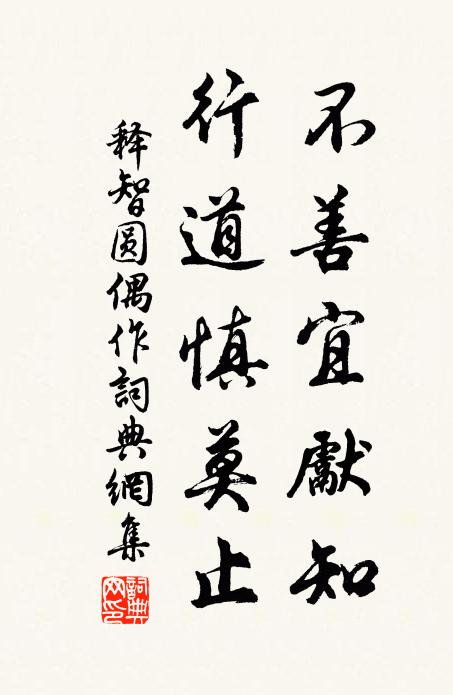 不善宜獻知
行道慎莫止
释智圆偶作詞典網集
詞典网印